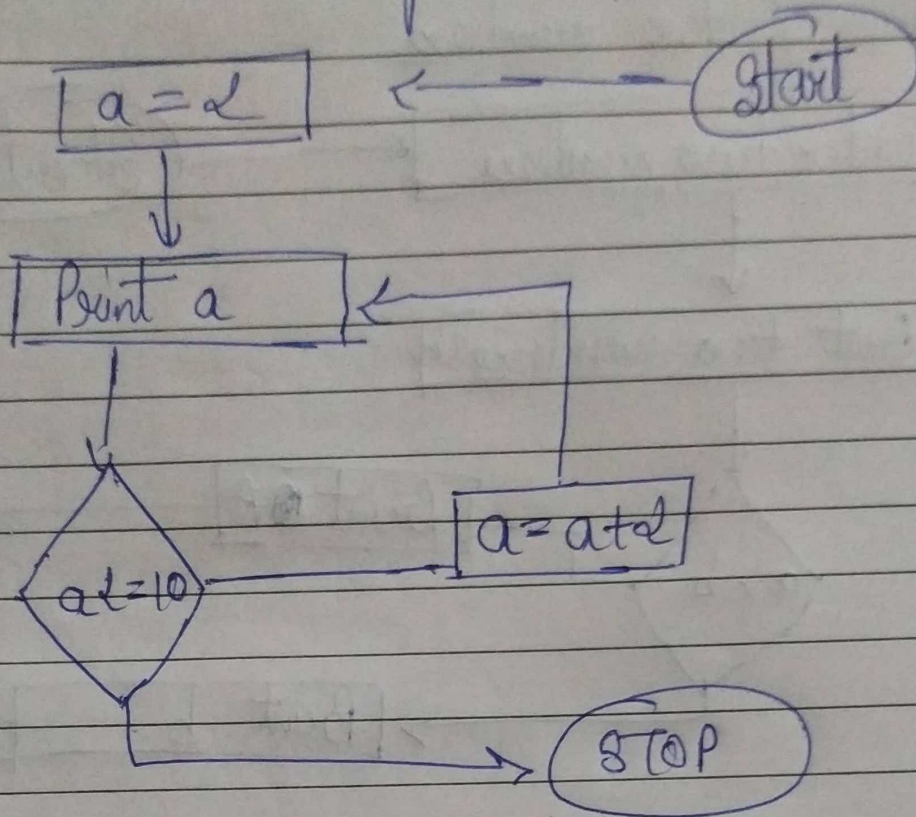 Start
a = 2
Print a
a<=10
a=a+2
STOP